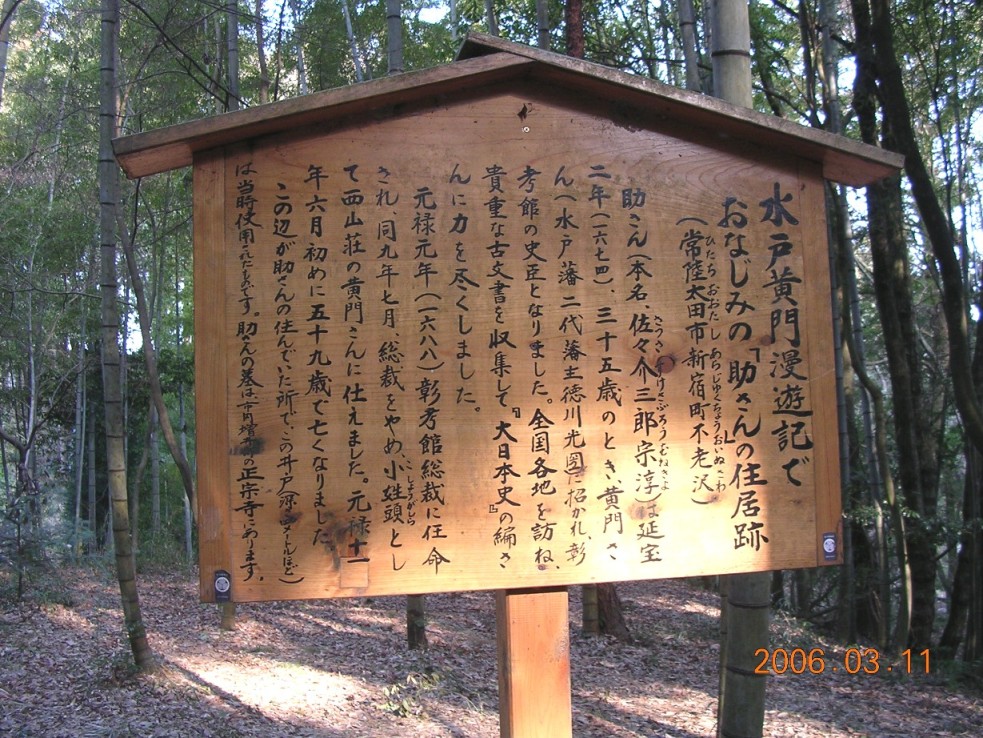 水戸黄門漫遊記で
おなじみの「助さん」の住居跡
(常陸太田市新宿町不老沢)
ひたちおおたし あらじゅくちょうおいぬざわ
助さん(本名、佐々介三郎宗淳)は延宝
さっさすけさぶろうむねきよ
二年(一六七四)、三十五歳のとき、黄門さ
ん(水戸藩二代藩主徳川光圀)に招かれ、彰
考館の史臣となりました。全国各地を訪ね、
貴重な古文書を収集して、『大日本史』の編さ
んに力を尽くしました。
元禄元年(一六八八)彰考館総裁に任命
され、同九年七月、総裁をやめ、小姓頭とし
こしょうがしら
て西山荘の黄門さんに仕えました。元禄十一
年六月初めに五十九歳で亡くなりました
この辺が助さんの住んでいた所で、この井戸(深さ メートルほど)
は当時使用されたものです。助さんの墓は の正宗寺にあります。
2006.03.11